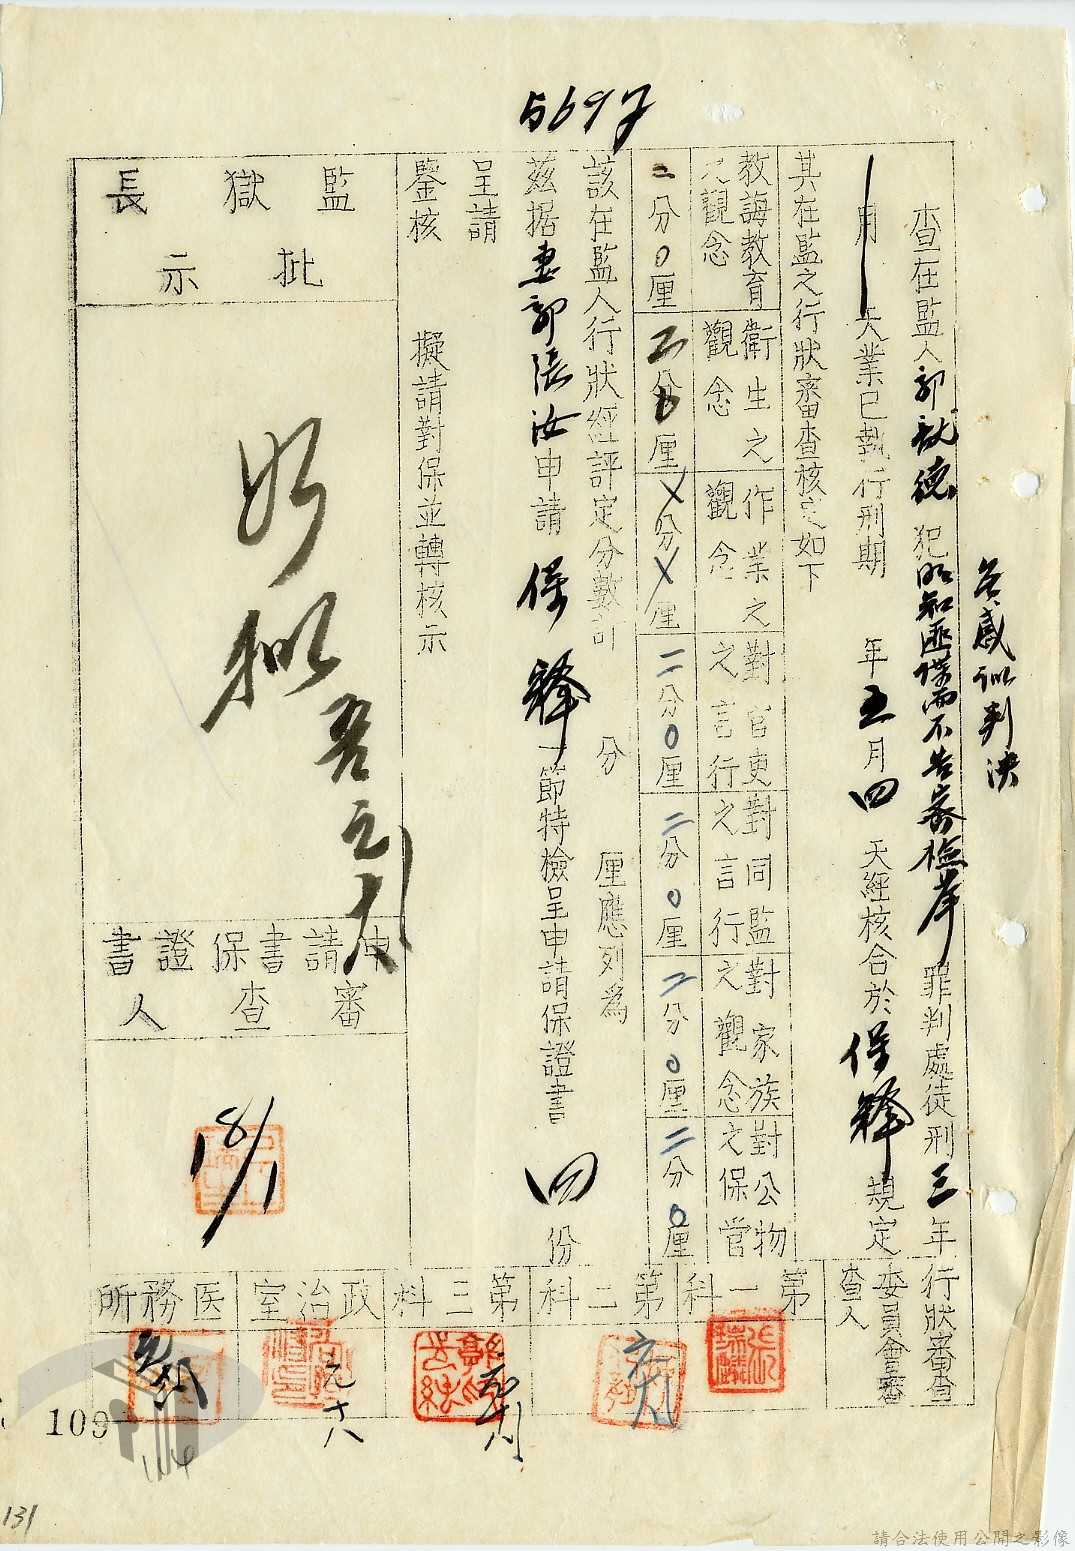 5697
查在監人郭 德 犯明知匪諜而不告密檢舉罪判處徒刑三年
月 天業已執行刑期 年五月四天經核合於保釋規定
其在監之行狀審查核定如下
教誨教育之觀念
衛生之觀念
作業之觀念
對官吏之言行
對同監之言行
對家族之觀念
對公物之保管
二分0厘
二分 厘
X分X厘
二分0厘
二分0厘
二分0厘
二分0厘
該在監人行狀經評定分數計 分 厘應列為
茲据妻郭張汝申請保釋一節特檢呈申請保證書四份
呈請
鑒核
擬請對保並轉核示
監獄長
批示
如擬
申請書保證書
審查人
18/1
行狀審查委員會審查人
第一科
第二科
第三科
政治室
医務所
元六
109
131
請合法使用公開之影像